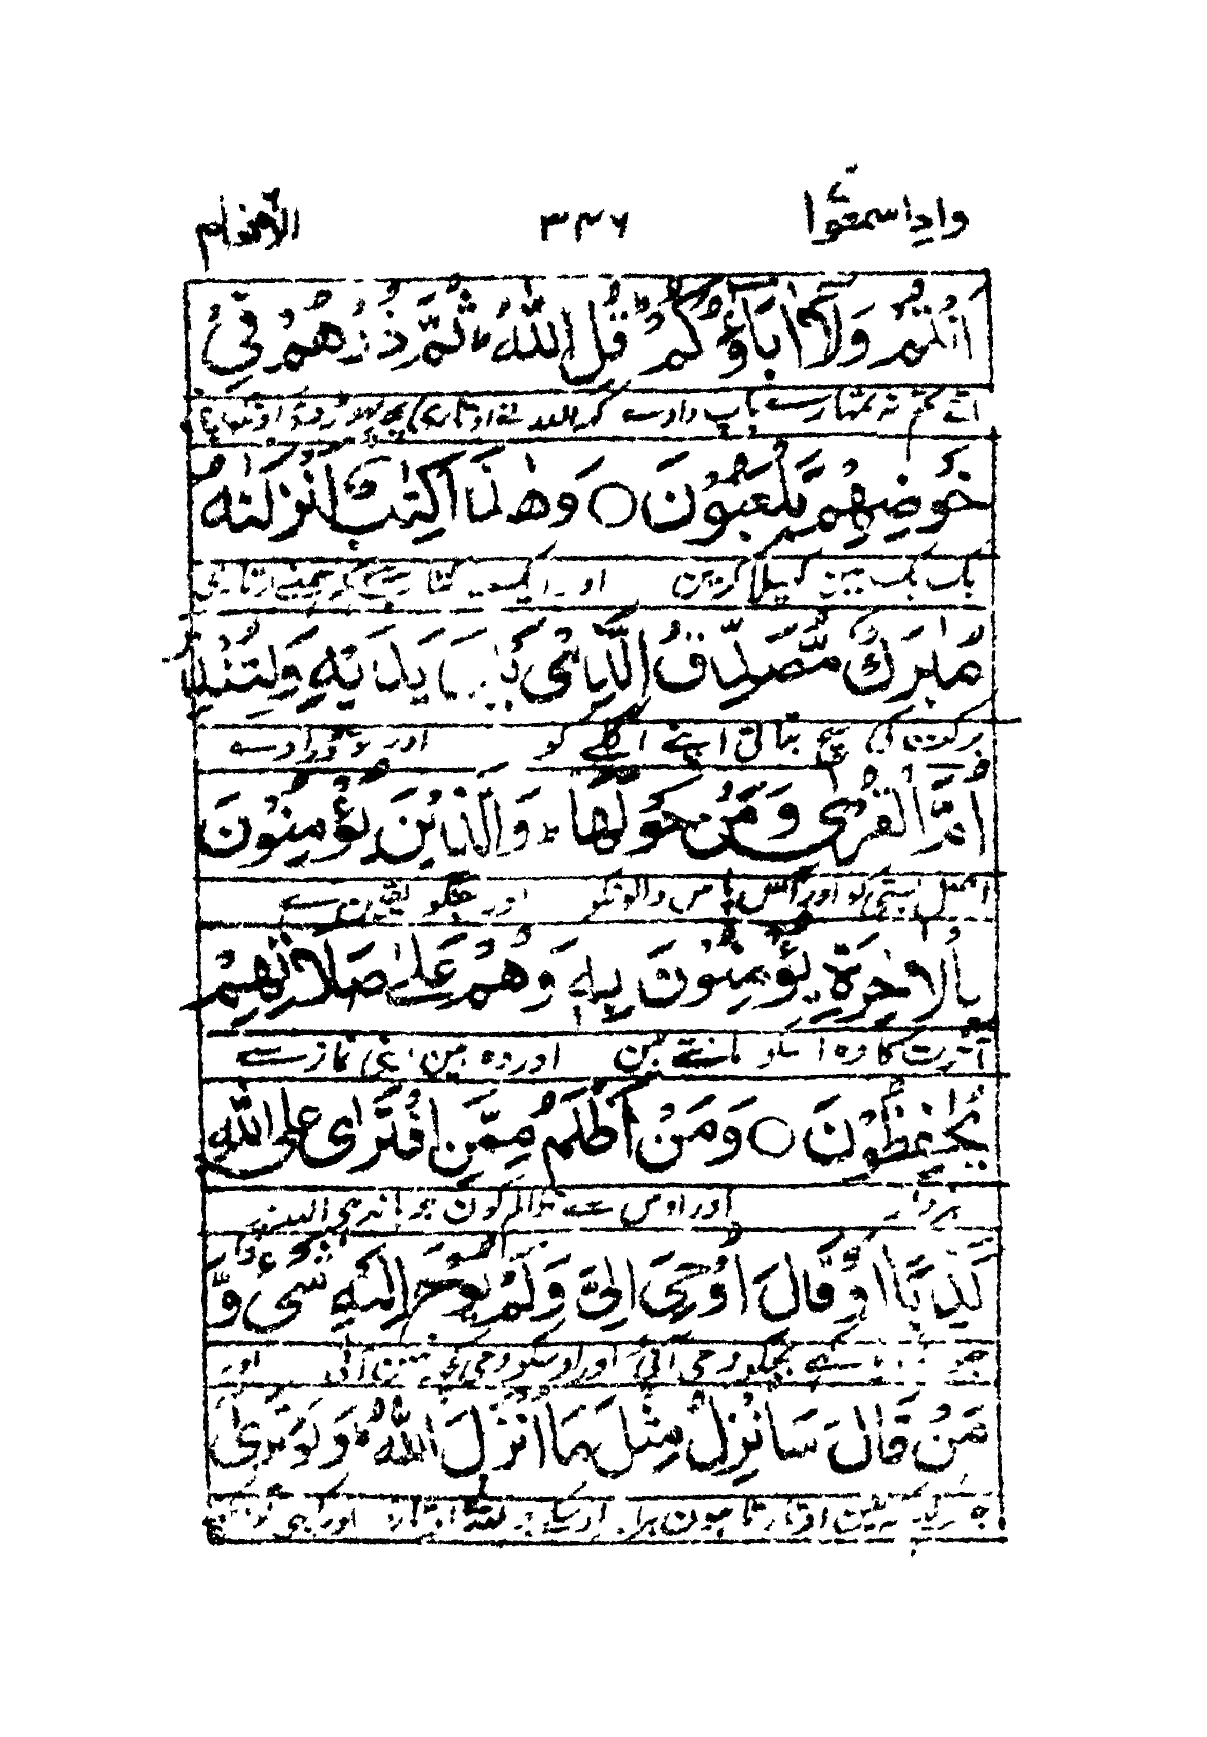 واذا سمعوا ٣٤٦ الانعام
اَنْتُمْ وَلَآ اٰبَآؤُكُمْ ؕ قُلِ اللّٰهُ ۙ ثُمَّ ذَرْهُمْ فِيْ
تم نہ تمہارے باپ دادے کہہ اللہ نے اوتاری
خَوْضِهِمْ يَلْعَبُوْنَ ○ وَهٰذَا كِتٰبٌ اَنْزَلْنٰهُ
بک بک میں کھیلا کریں اور ایک کتاب ہے کہ ہمنے اتاری
مُبٰرَكٌ مُّصَدِّقُ الَّذِيْ بَيْنَ يَدَيْهِ وَلِتُنْذِرَ
برکت کی سچ بتاتی اپنے اگلے کو اور تو ڈراوے
اُمَّ الْقُرٰى وَمَنْ حَوْلَهَا ؕ وَالَّذِيْنَ يُؤْمِنُوْنَ
اصل بستی کو اور آس پاس والونکو اور جنکو یقین ہے
بِالْاٰخِرَةِ يُؤْمِنُوْنَ بِهٖ وَهُمْ عَلٰى صَلَاتِهِمْ
آخرت کا وہ اسکو مانتے ہین اور وہ ہین اپنی نماز سے
يُحَافِظُوْنَ ○ وَمَنْ اَظْلَمُ مِمَّنِ افْتَرٰى عَلَى اللّٰهِ
خبردار اور اوس سے ظالم کون جو باندھی اللہ پر
كَذِبًا اَوْ قَالَ اُوْحِيَ اِلَيَّ وَلَمْ يُوْحَ اِلَيْهِ شَيْءٌ وَّ
کہے مجکو وحی آئی اور اوسکو وحی کچھ نہین آئی اور
مَنْ قَالَ سَاُنْزِلُ مِثْلَ مَآ اَنْزَلَ اللّٰهُ ؕ وَلَوْ تَرٰٓى
جو کہے مین اوتارتا ہون برابر اوسکے جو اللہ نے اوتارا اور کبھی تو دیکھے